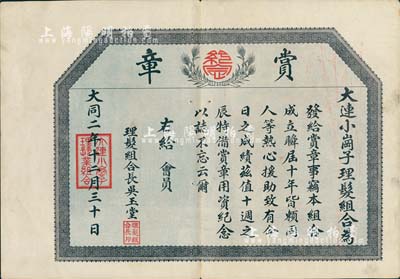 賞章
大連小崗子理髮組合為
發給賞章事竊本組合
成立瞬届十年皆賴同
人等熱心援助致有今
日之成績茲值十週之
辰特備賞章用資紀念
以誌不忘云爾
右給 會員
理髮組合長吳玉堂
大同二年十二月三十日